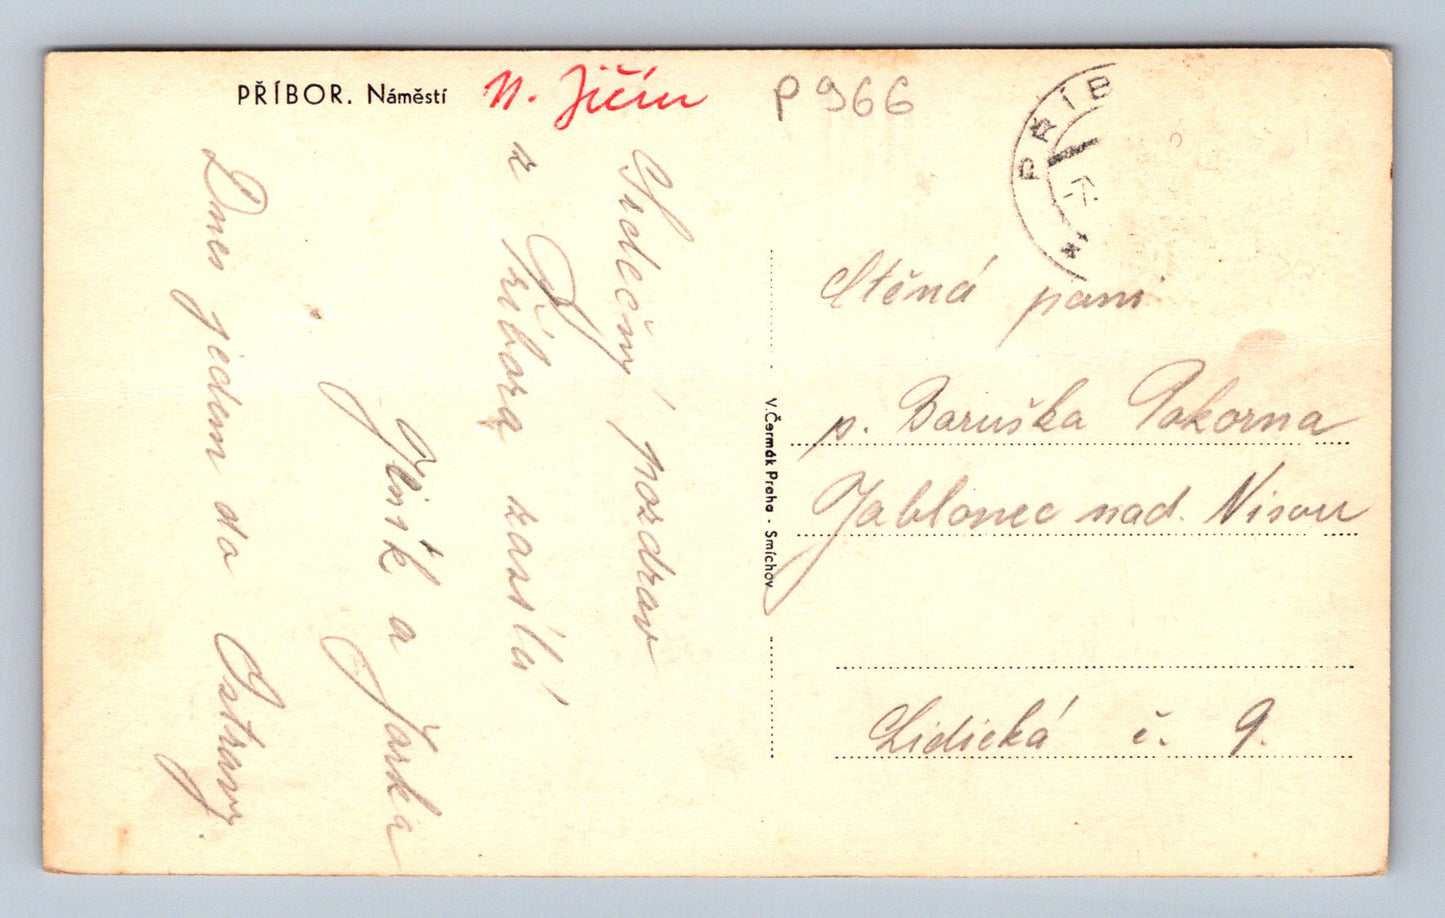 PŘÍBOR. Náměstí
N. Jičín
P 966
PŘÍB
-7.
Srdečný pozdrav
z Příbora zasílá
Jeník a Jarka
Dnes jedem do Ostravy.
V. Čermák Praha - Smíchov
Ctěná paní
p. Baruška Pokorna
Jablonec nad. Nisou
Lidická č. 9.